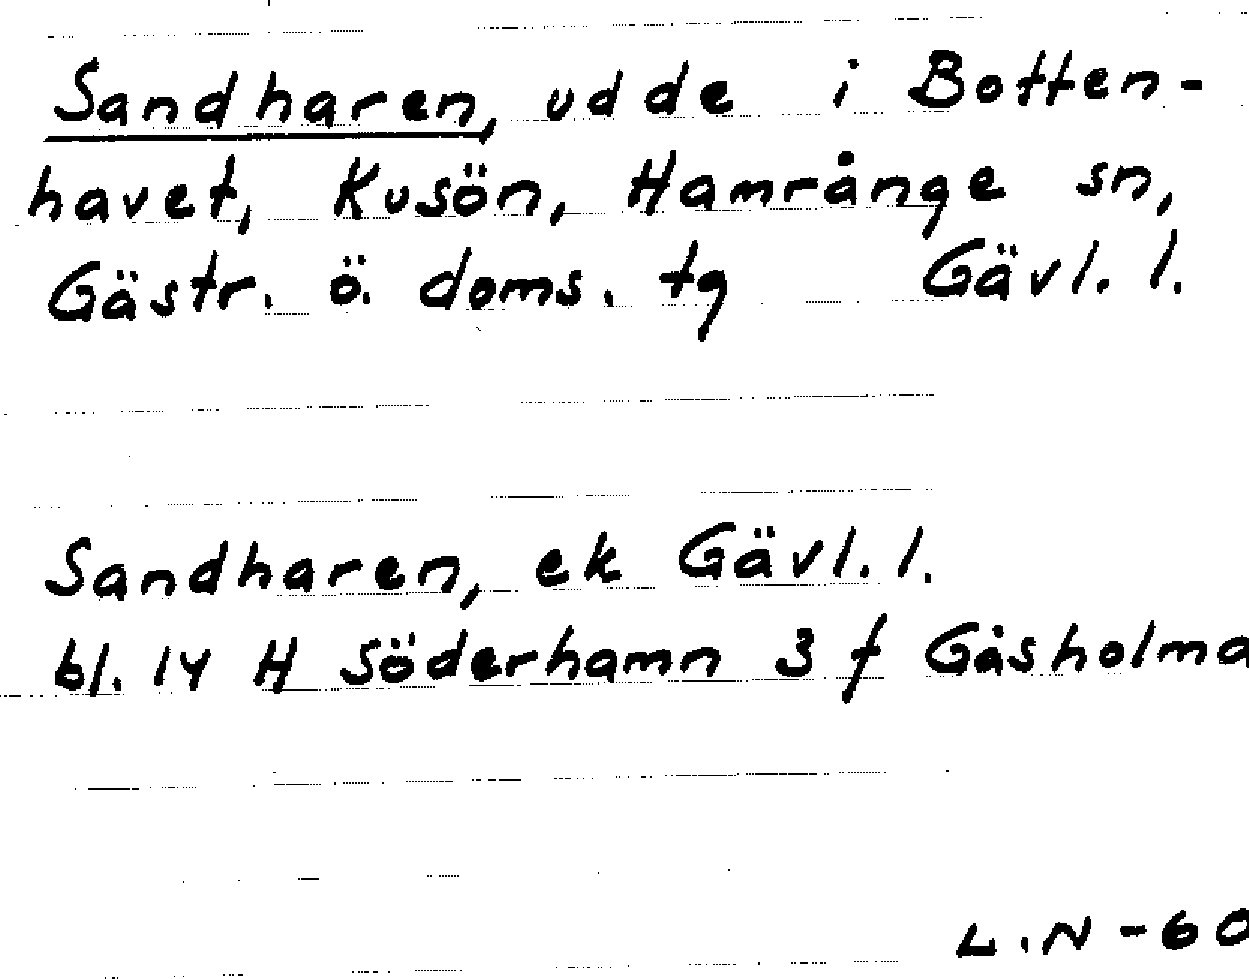 Sandharen, udde i Botten-
havet, Kusön, Hamrånge sn,
Gästr. ö. doms. tg Gävl. l.
Sandharen, ek Gävl. l.
bl. 14 H Söderhamn 3 f Gåsholma
L.N-60